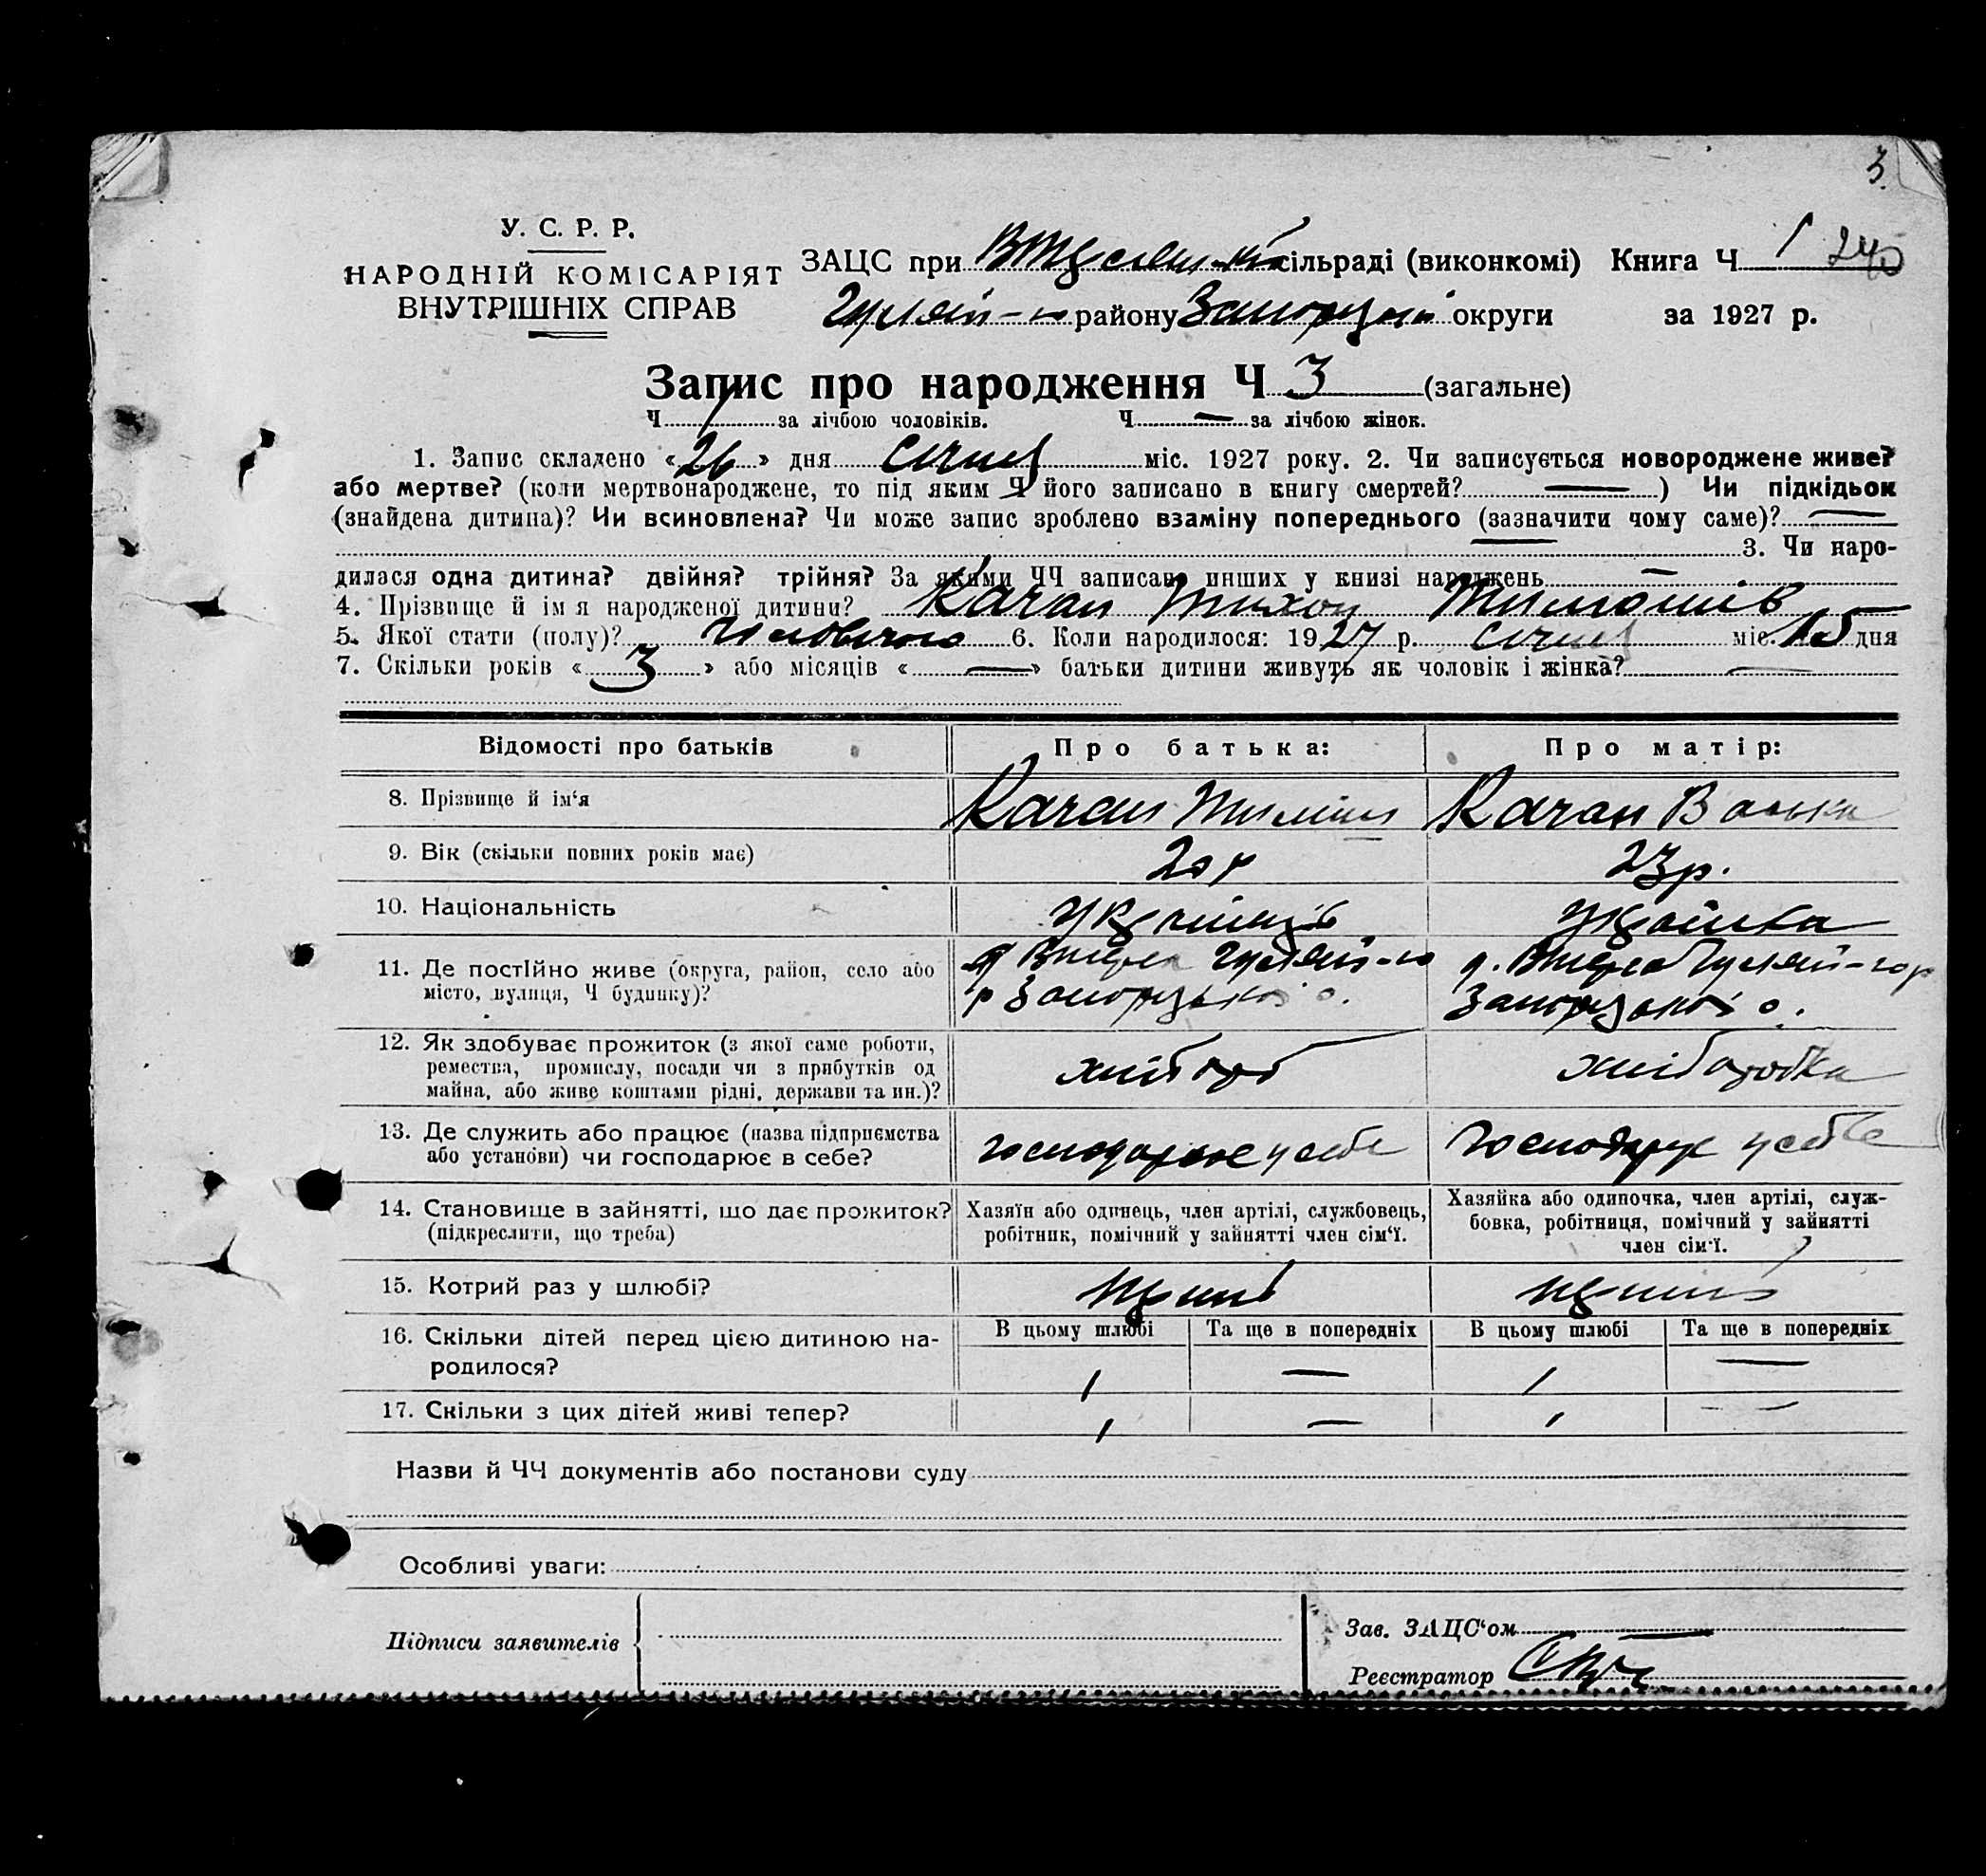 3.
У. С. Р. Р.
НАРОДНІЙ КОМІСАРІЯТ
ВНУТРІШНІХ СПРАВ
ЗАЦС при сільраді (виконкомі) Книга Ч 1 240
Гуляй-п району Запорізької округи за 1927 р.
Запис про народження Ч 3 (загальне)
Ч 1 за лічбою чоловіків. Ч — за лічбою жінок.
1. Запис складено «26» дня січня міс. 1927 року. 2. Чи записується новороджене живе?
або мертве? (коли мертвонароджене, то під яким Ч його записано в книгу смертей? — ) Чи підкідьок
(знайдена дитина)? Чи всиновлена? Чи може запис зроблено взаміну попереднього (зазначити чому саме)? —
— 3. Чи наро-
дилася одна дитина? двійня? трійня? За якими ЧЧ записано инших у книзі народжень —
4. Прізвище й ім'я народженої дитини? Качан Тихон Тимошів
5. Якої стати (полу)? чоловічого 6. Коли народилося: 1927 р. січня міс. 15 дня
7. Скільки років « 3 » або місяців « — » батьки дитини живуть як чоловік і жінка? —
Відомості про батьків Про батька: Про матір:
8. Прізвище й ім'я Качан Качан
9. Вік (скільки повних років має) 23 р.
10. Національність українець українка
11. Де постійно живе (округа, район, село або
місто, вулиця, Ч будинку)? Гуляй-п Запорізької о. Гуляй-п р Запорізької о.
12. Як здобуває прожиток (з якої саме роботи,
ремества, промислу, посади чи з прибутків од
майна, або живе коштами рідні, держави та ин.)? хлібороб хліборобка
13. Де служить або працює (назва підприємства
або установи) чи господарює в себе? господарює у себе господарює у себе
14. Становище в зайнятті, що дає прожиток?
(підкреслити, що треба)
Хазяїн або одинець, член артілі, службовець,
робітник, помічний у зайнятті член сім'ї.
Хазяйка або одиночка, член артілі, служ-
бовка, робітниця, помічний у зайнятті
член сім'ї.
15. Котрий раз у шлюбі?
16. Скільки дітей перед цією дитиною на-
родилося?
В цьому шлюбі Та ще в попередніх В цьому шлюбі Та ще в попередніх
1 — 1 —
17. Скільки з цих дітей живі тепер? 1 — 1 —
Назви й ЧЧ документів або постанови суду
Особливі уваги:
Підписи заявителів
Зав. ЗАЦС'ом —
Реєстратор